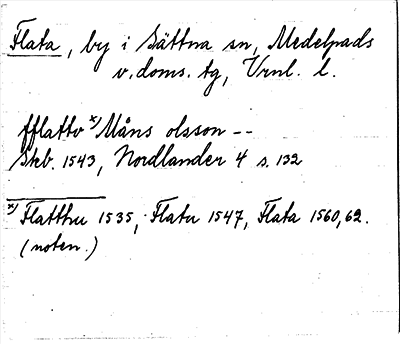 Flata, by i Sättna sn, Medelpads
v. doms. tg, Vrnl. l.
fflatto x) Måns olsson --
Skb. 1543, Nordlander 4 s. 132
x) Flatthu 1535, Flatu 1547, Flata 1560, 62.
(noten.)